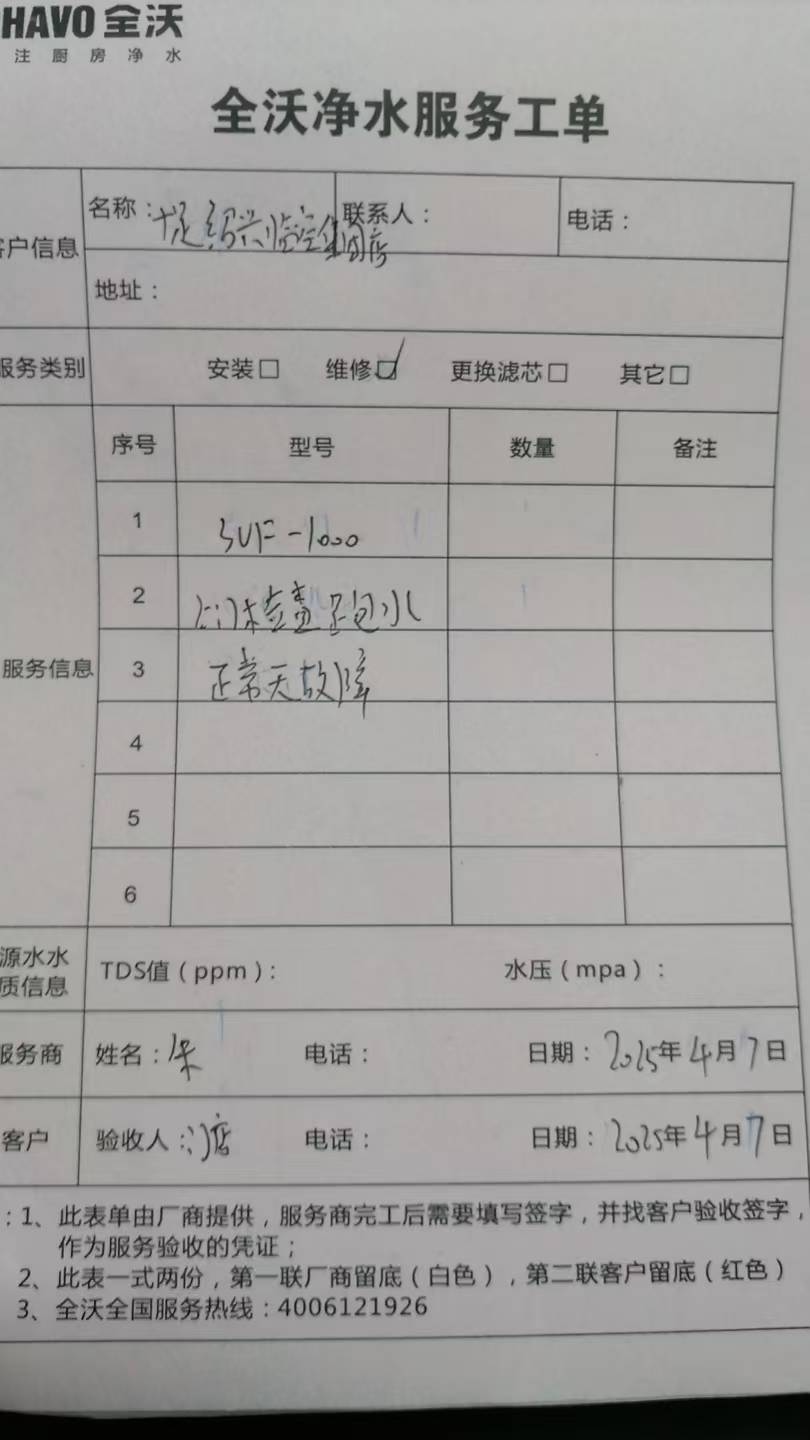 HAVO 全沃
注厨房净水
全沃净水服务工单
客户信息
名称：绍兴临空 店
联系人：
电话：
地址：
服务类别
安装□ 维修☑ 更换滤芯□ 其它□
服务信息
序号 型号 数量 备注
1 SUF-1000
2 上门检查 包水
3 正常无故障
4
5
6
源水水质信息
TDS值（ppm）： 水压（mpa）：
服务商 姓名：朱 电话： 日期：2025年4月7日
客户 验收人：门店 电话： 日期：2025年4月7日
：1、此表单由厂商提供，服务商完工后需要填写签字，并找客户验收签字，
作为服务验收的凭证；
2、此表一式两份，第一联厂商留底（白色），第二联客户留底（红色）
3、全沃全国服务热线：4006121926